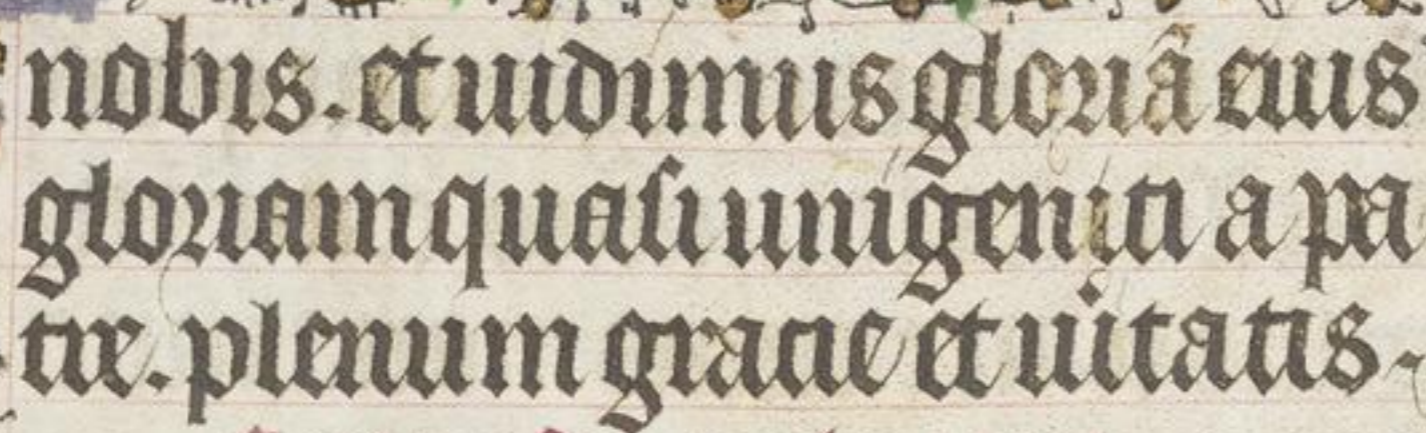 nobis. et uidimus gloriā eius
gloriam quasi unigeniti a pa
tre. plenum gracie et uitatis.